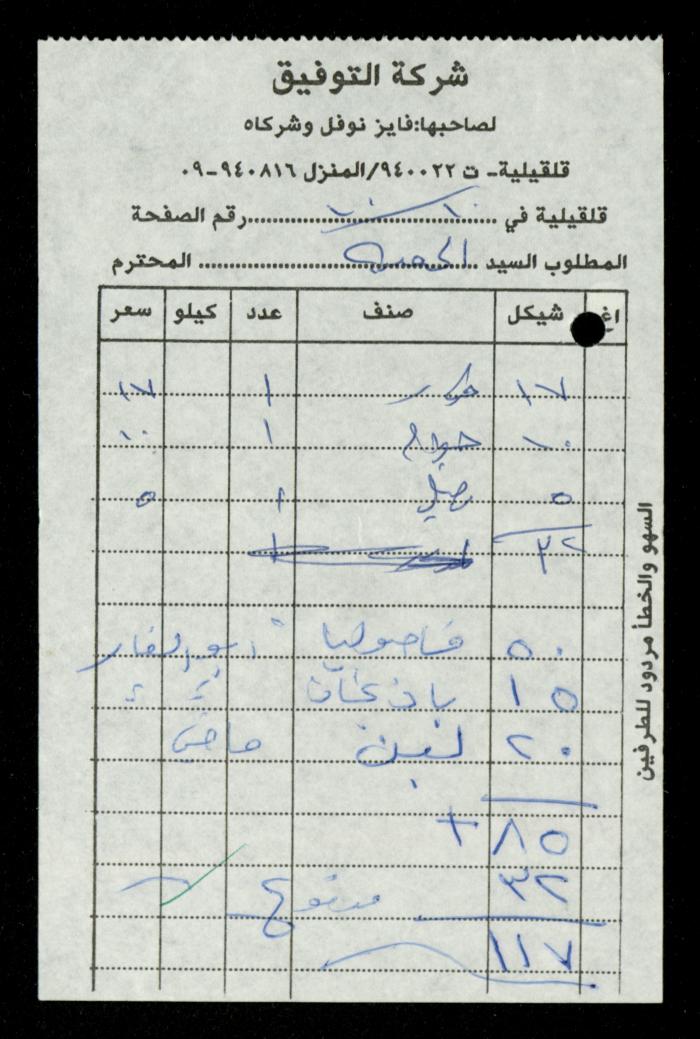 شركة التوفيق
لصاحبها:فايز نوفل وشركاه
قلقيلية- ت ٩٤٠٠٢٢/المنزل ٩٤٠٨١٦-٠٩
قلقيلية في ........ رقم الصفحة
المطلوب السيد ........ المحترم
اغ شيكل صنف عدد كيلو سعر
١٧ ١ ١٧
١٠ ١ ١٠
٥ ١ ٥
٣٢
٥٠ فاصوليا
١٥ باذنجان
٢٠ لبن
٨٥ +
٣٢ مدفوع
١١٧
السهو والخطأ مردود للطرفين